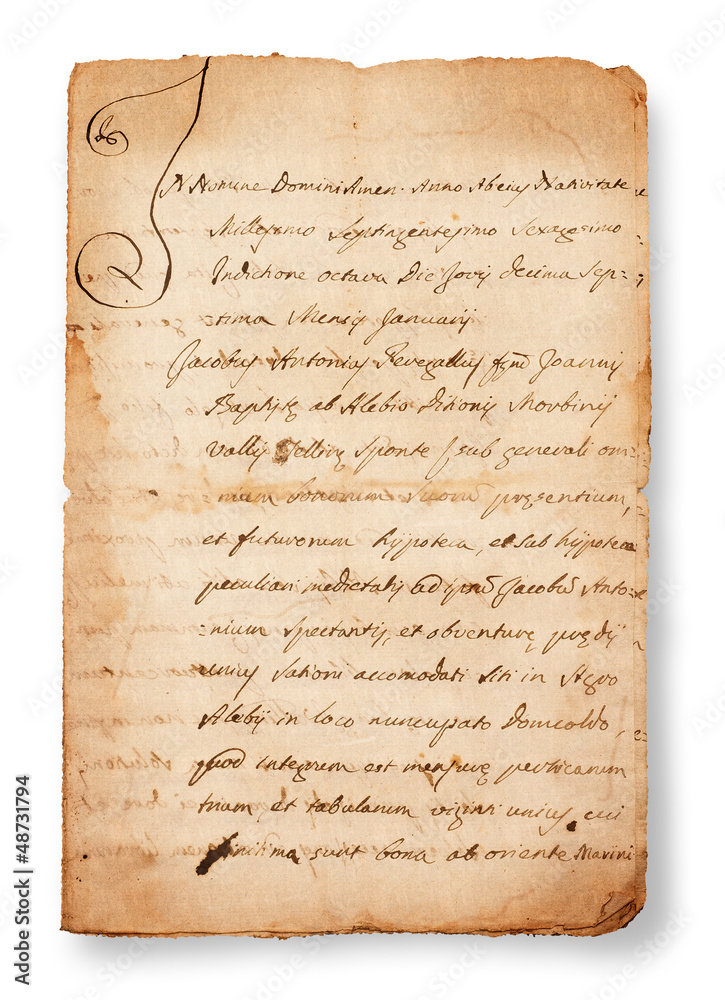 IN Nomine Domini Amen. Anno Ab eius Nativitate
Millesimo Septingentesimo Sexagesimo
Indictione octava Die Jovis decima Sep=
=tima Mensis Januarij
Jacobus Antonius qm̃ Joannis
Baptistę ab Alebio Ditionis Morbinij
Vallis Tellinę sponte sub generali om=
nium bonorum suorũ pręsentium,
et futurorum hijpoteca, et sub hijpoteca
peculiari medietatis ad ipsũ Jacobũ Anto=
=nium spectantis, et obventurę, prędij
unius sationi accomodati siti in Agro
Alebij in loco nuncupato Domcoldo,
quod integrum est mensurę perticarum
trium et tabularum viginti unius, cui
finitima sunt bona ab oriente Marini
Adobe Stock | #48731794
Adobe Stock